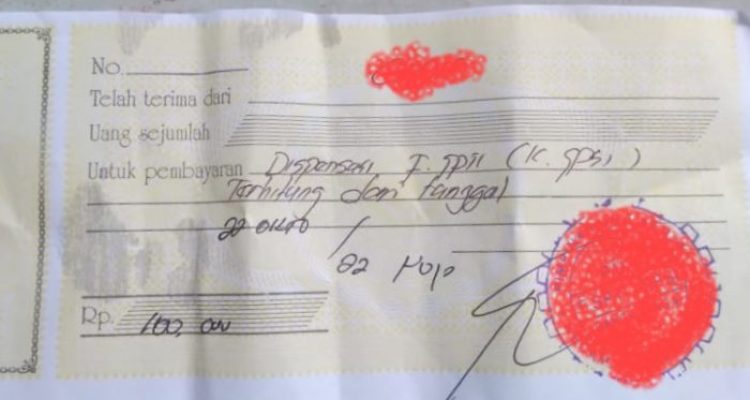 No.
Telah terima dari
Uang sejumlah
Untuk pembayaran Dispensasi
Terhitung dari tanggal
22
22
Rp. 100,000